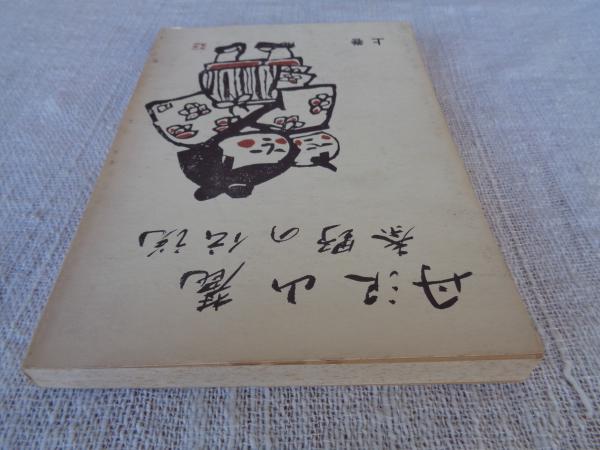 丹沢山麓
秦野の伝説
上巻